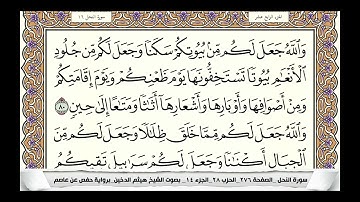 الجزء الرابع عشر
سورة النحل ١٦
وَاللَّهُ جَعَلَ لَكُم مِّنۢ بُيُوتِكُمْ سَكَنًا وَجَعَلَ لَكُم مِّن جُلُودِ
الْأَنْعَٰمِ بُيُوتًا تَسْتَخِفُّونَهَا يَوْمَ ظَعْنِكُمْ وَيَوْمَ إِقَامَتِكُمْ
وَمِنْ أَصْوَافِهَا وَأَوْبَارِهَا وَأَشْعَارِهَا أَثَٰثًا وَمَتَٰعًا إِلَىٰ حِينٍ ٨٠
وَاللَّهُ جَعَلَ لَكُم مِّمَّا خَلَقَ ظِلَٰلًا وَجَعَلَ لَكُم مِّنَ
الْجِبَالِ أَكْنَٰنًا وَجَعَلَ لَكُمْ سَرَٰبِيلَ تَقِيكُمُ
سورة النحل _ الصفحة ٢٧٦_ الحزب ٢٨_ الجزء ١٤ _ بصوت الشيخ هيثم الدخين_ برواية حفص عن عاصم